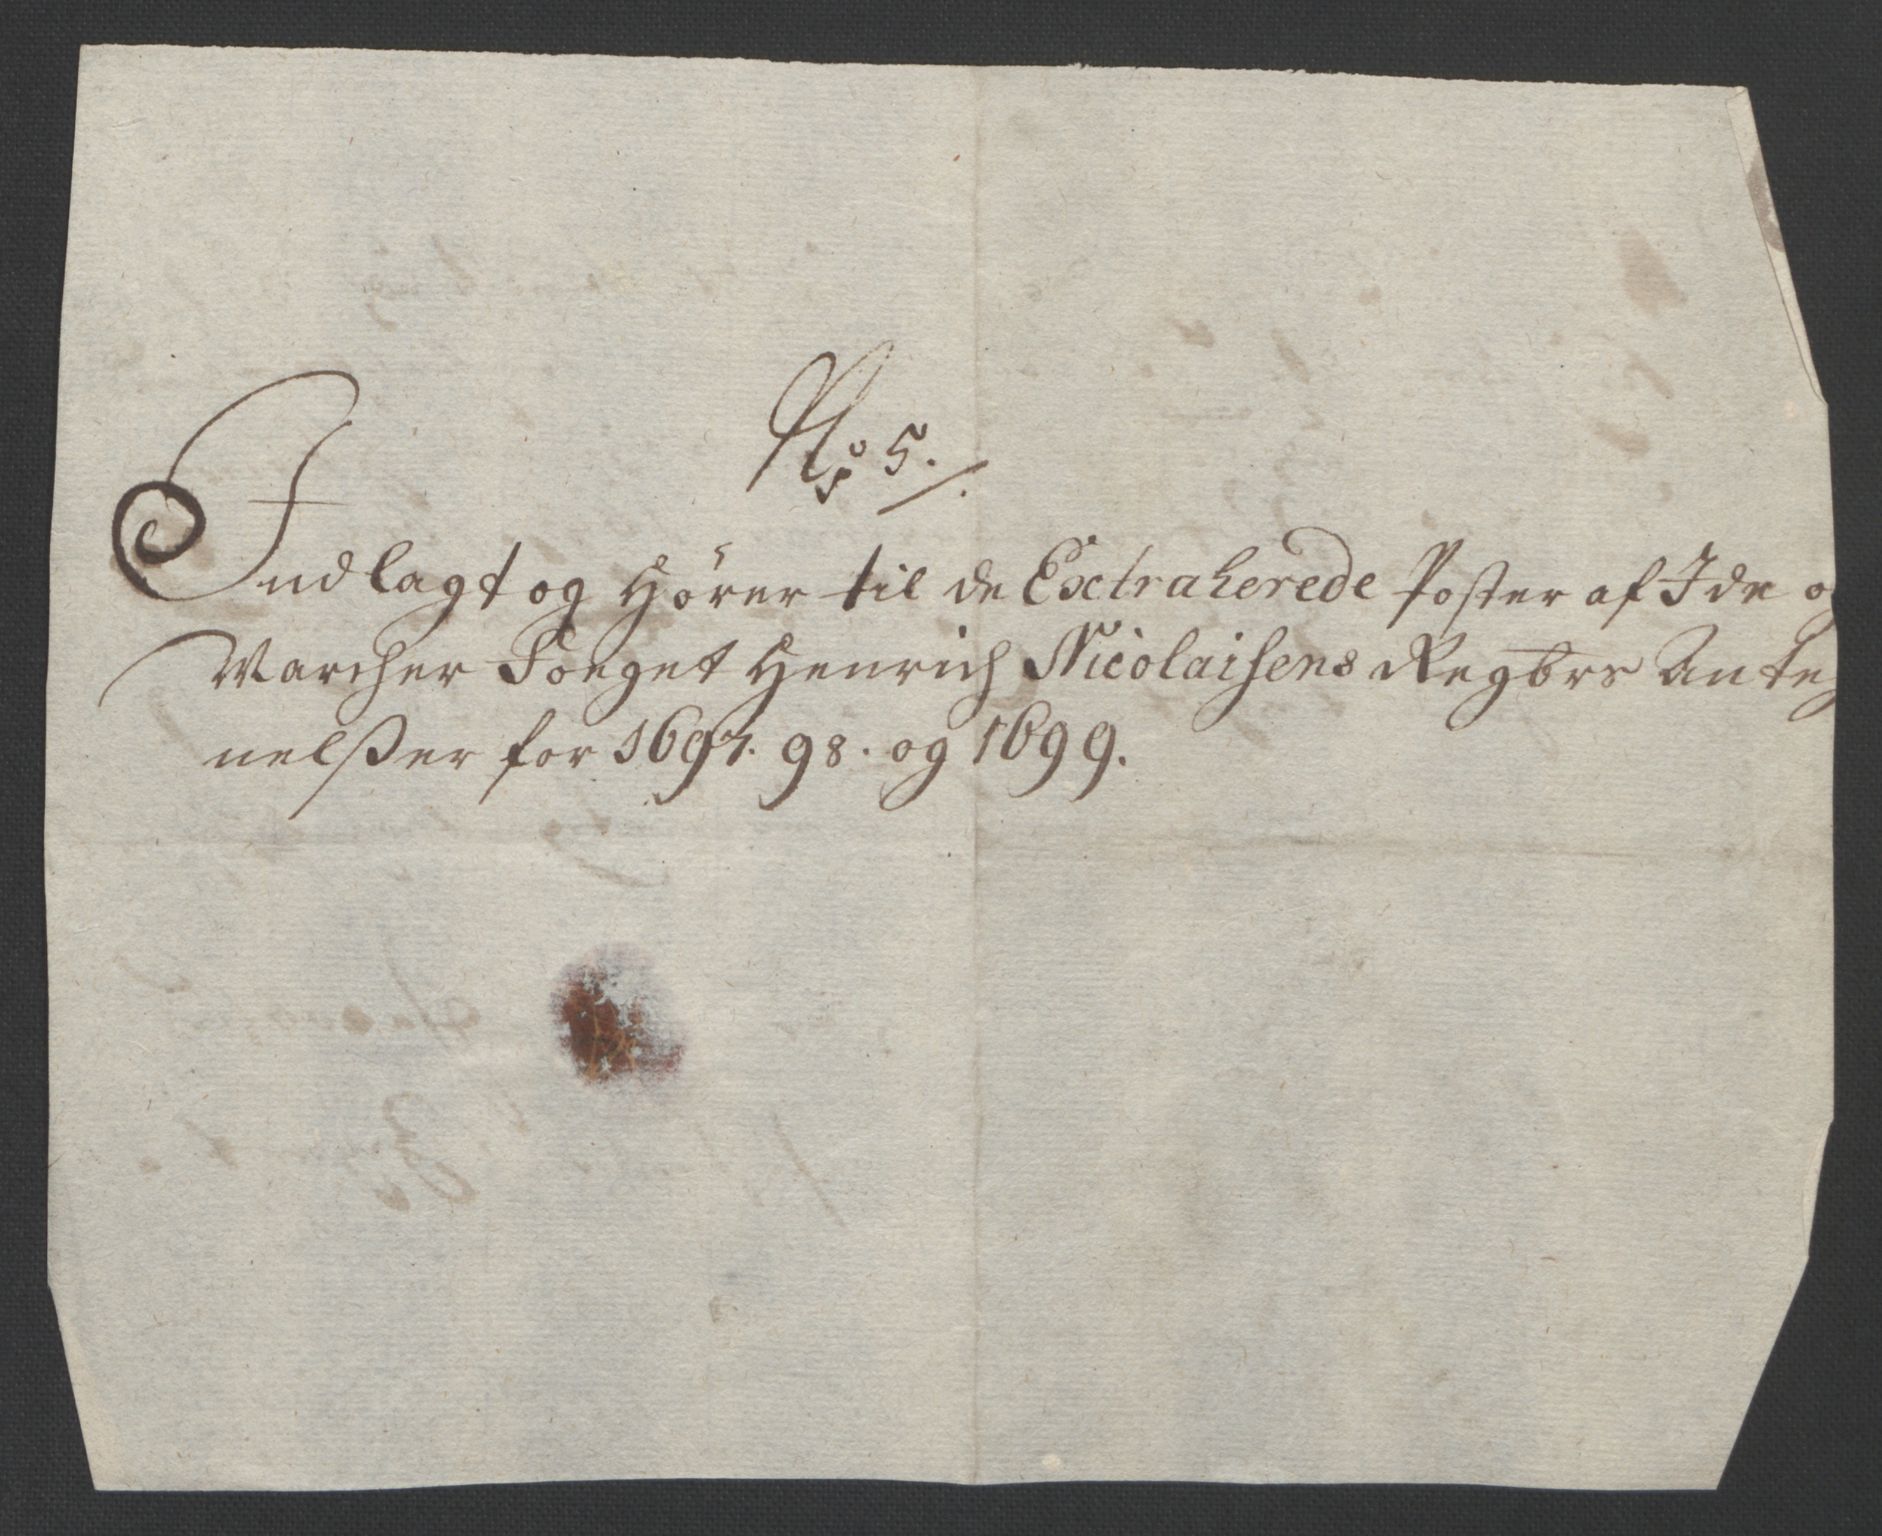 No 5.
Indlagt og Hører til de Extraherede Poster af Ide og
Marcher Foeget Henrich Nicolaisens Regbrs Anteg
nelßer for 1697. 98. og 1699.